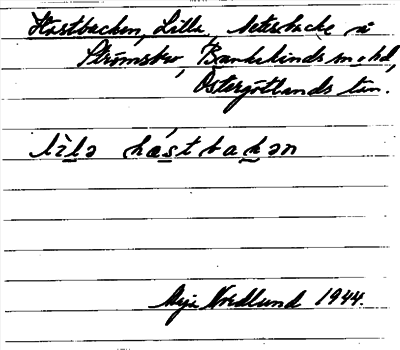 Hästbacken, Lilla, betesbacke å
Strömsbro, Bankekinds sn o hd,
Östergötlands län.
lìlə hǽstbakən
Nordlund 1944.